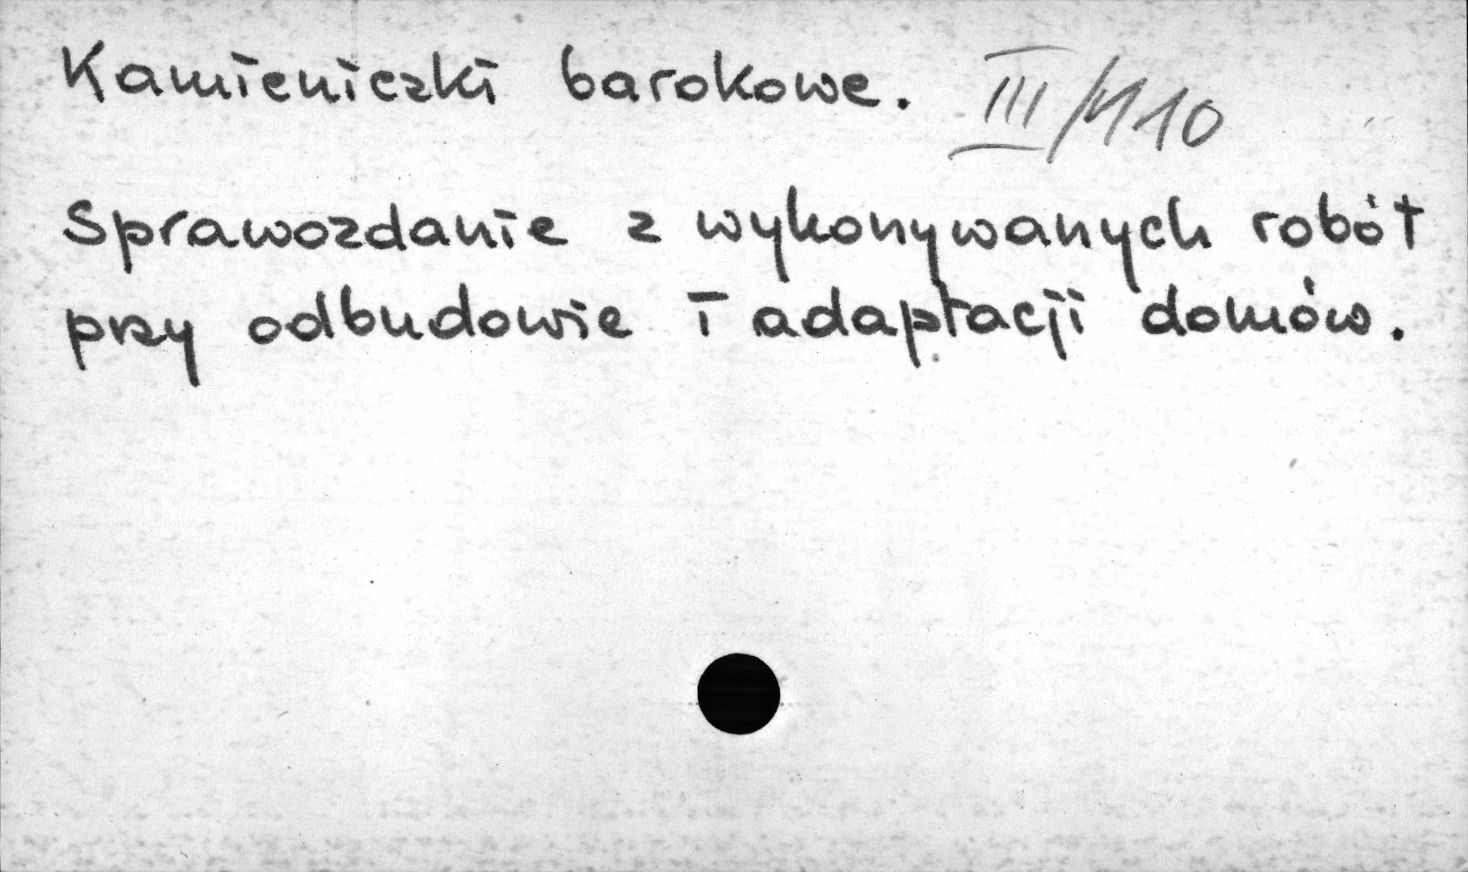 Kamieniczki barokowe. III/1110
Sprawozdanie z wykonywanych robót
przy odbudowie i adaptacji domów.